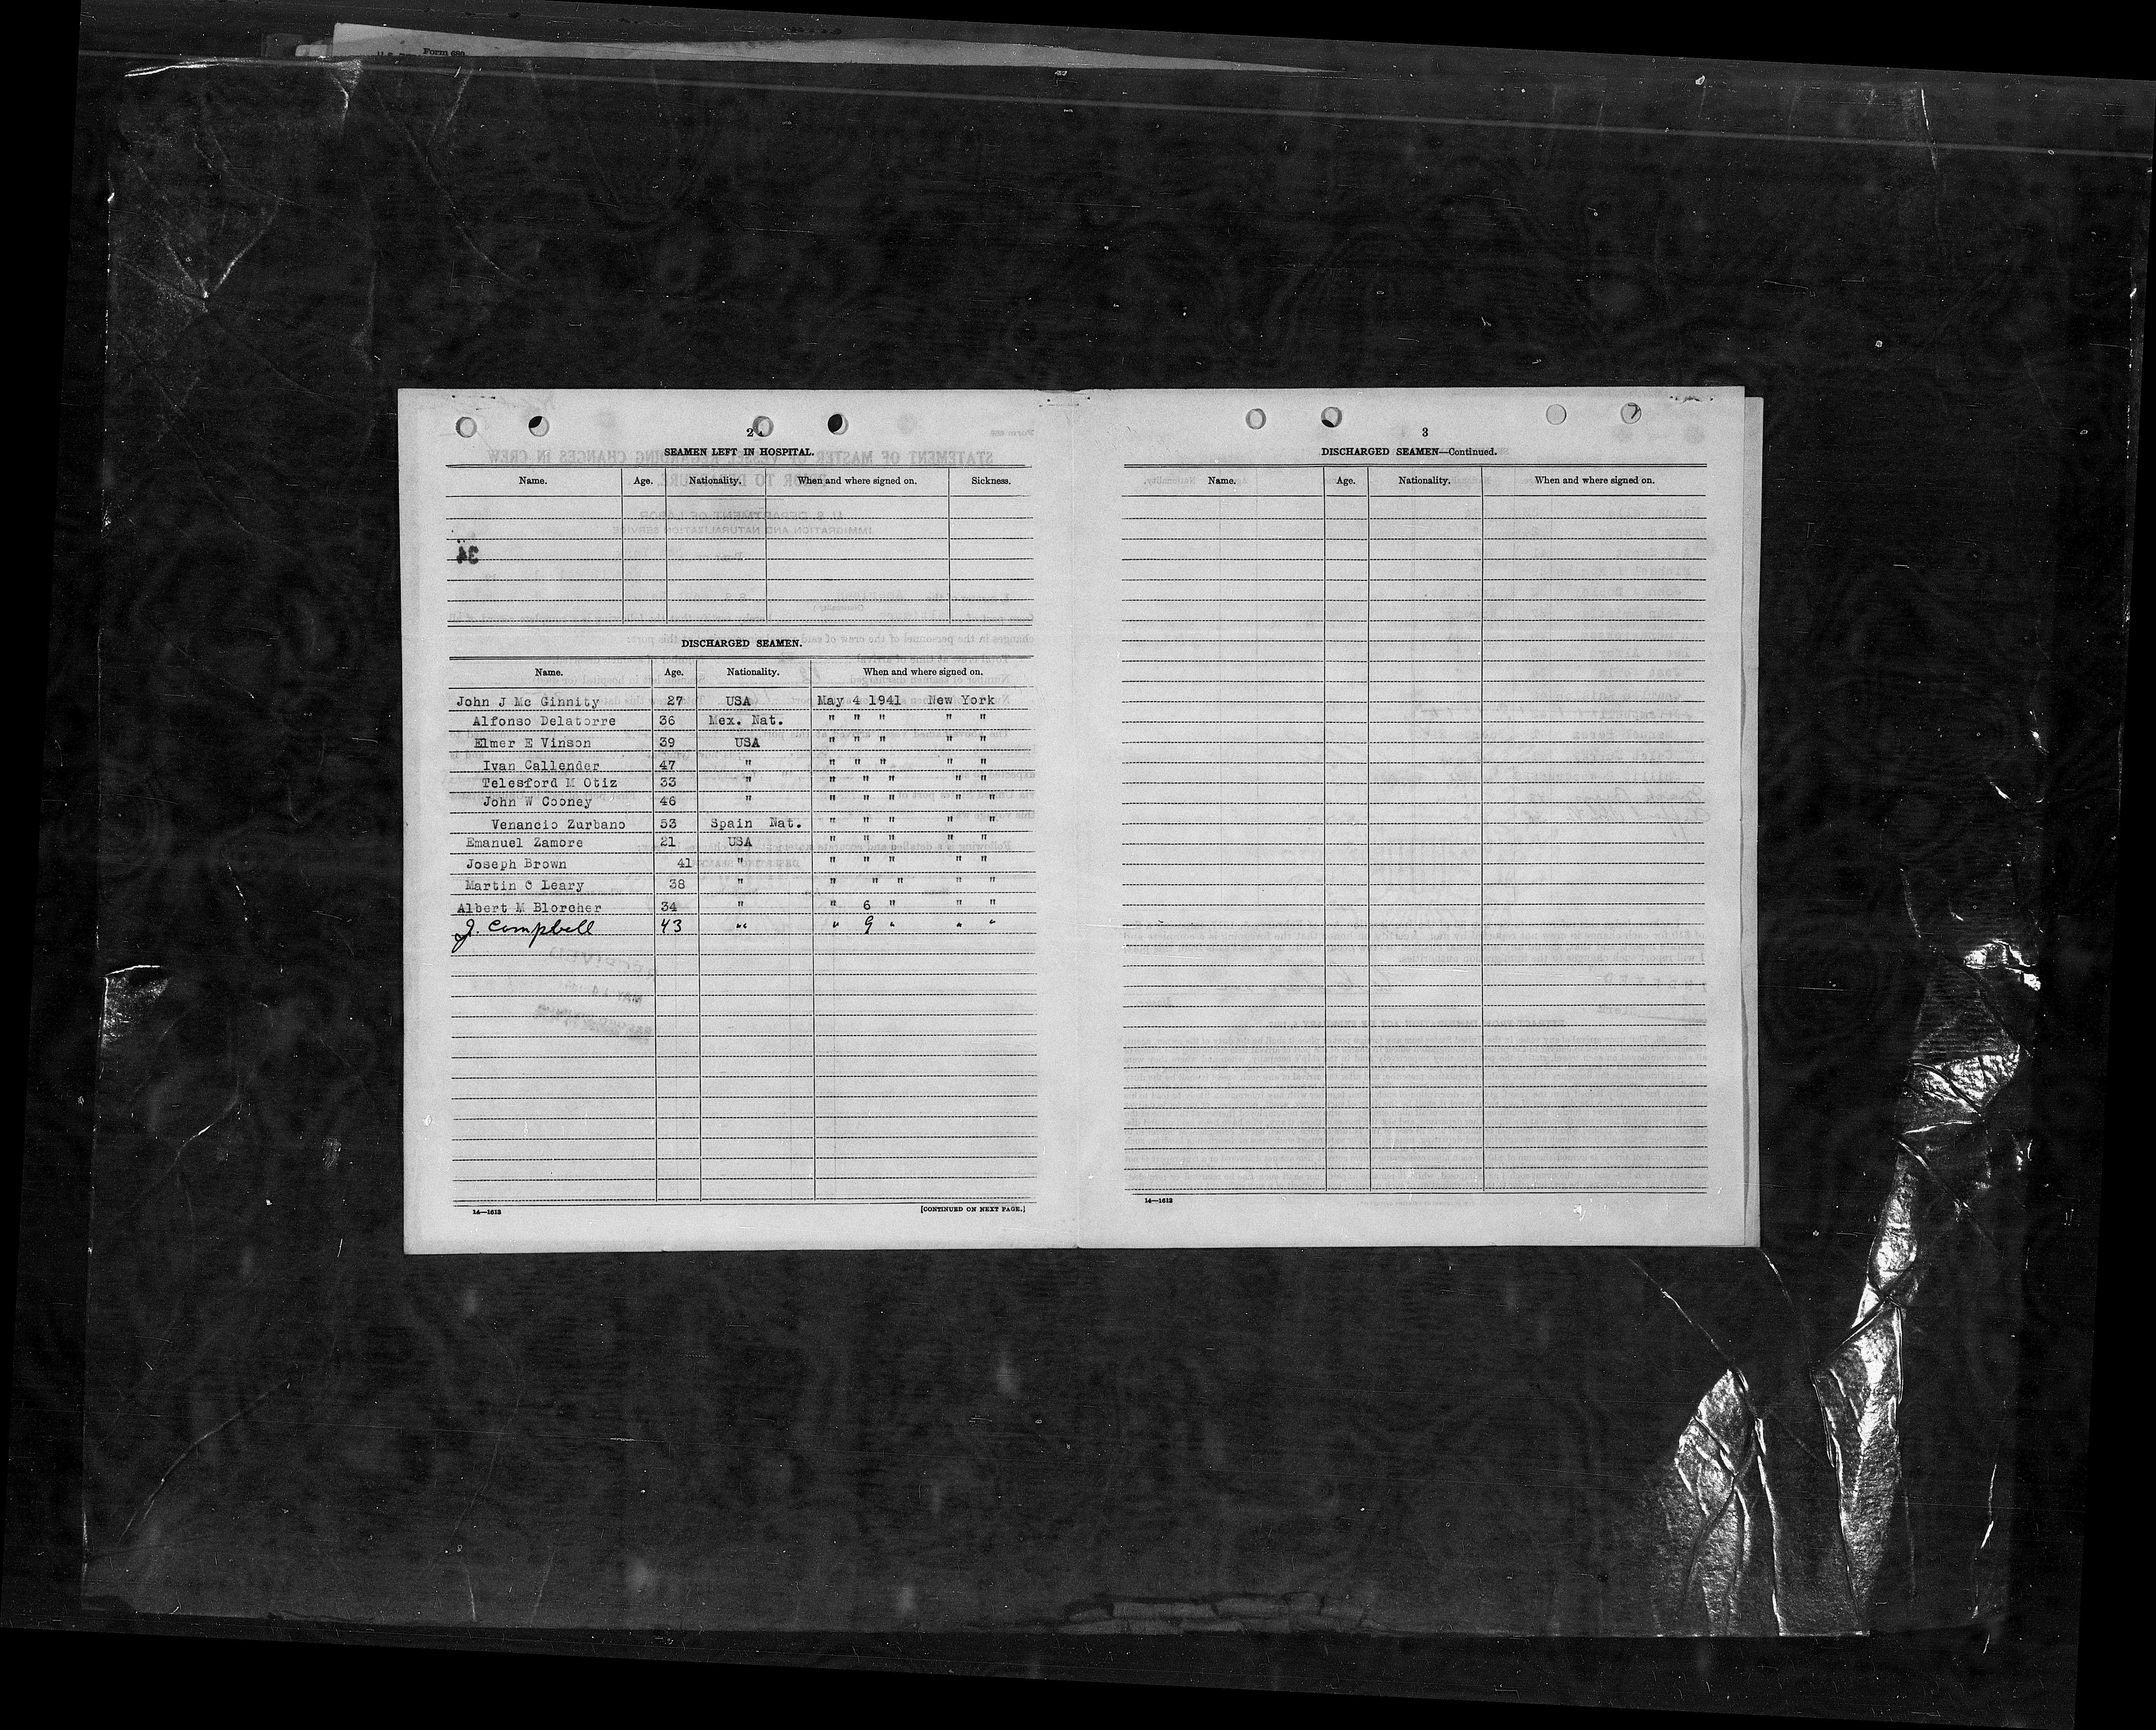 Form 680
2
SEAMEN LEFT IN HOSPITAL.
Name. Age. Nationality. When and where signed on. Sickness.
34
DISCHARGED SEAMEN.
Name. Age. Nationality. When and where signed on.
John J Mc Ginnity 27 USA May 4 1941 New York
Alfonso Delatorre 36 Mex. Nat. " " " " "
Elmer E Vinson 39 USA " " " " "
Ivan Callender 47 " " " " " "
Telesford M Otiz 33 " " " " " "
John W Cooney 46 " " " " " "
Venancio Zurbano 53 Spain Nat. " " " " "
Emanuel Zamore 21 USA " " " " "
Joseph Brown 41 " " " " " "
Martin O Leary 38 " " " " " "
Albert M Blorcher 34 " " 6 " " "
J. Campbell 43 " " 9 " " "
14—1612
[CONTINUED ON NEXT PAGE.]
3
DISCHARGED SEAMEN—Continued.
Name. Age. Nationality. When and where signed on.
14—1612